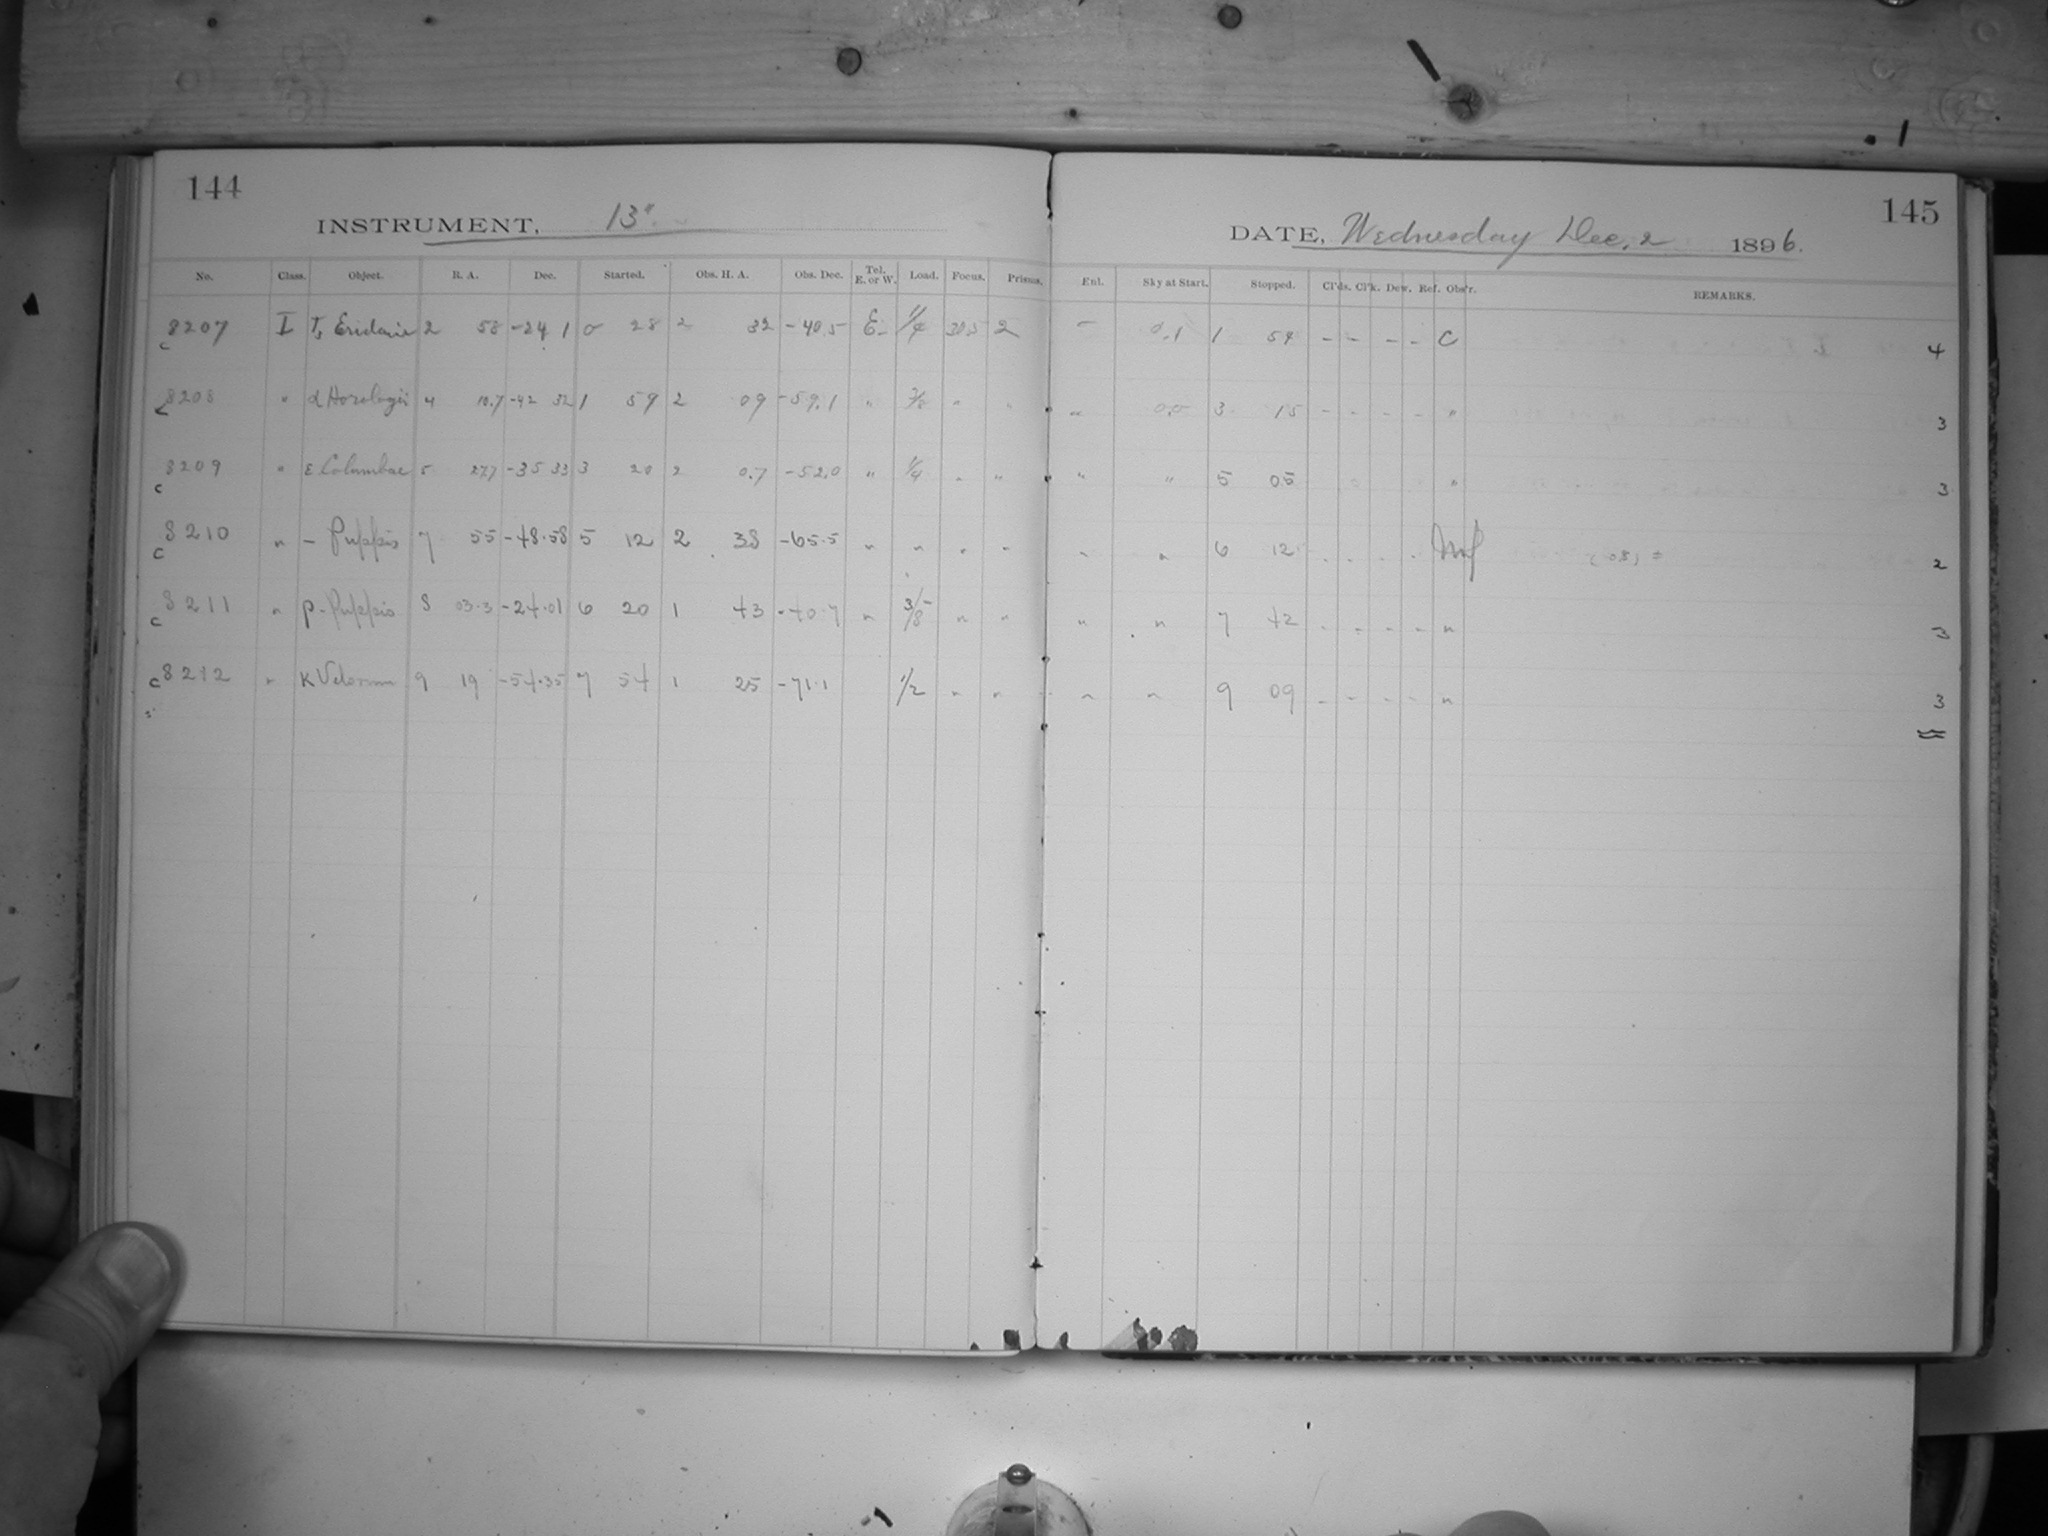 144
INSTRUMENT, 13"
No. Class. Object. R. A. Dec. Started. Obs. H. A. Obs. Dec. Tel. E. or W. Load. Focus. Prisms.
8207 I τ3 Eridani 2 58 -24 1 0 28 2 32 -40.5 E. 1/4 30.5 2
8208 " α Horologii 4 10.7 -42 32 1 59 2 09 -59.1 " 3/8 " "
8209 " ε Columbae 5 27.7 -35 33 3 20 2 0.7 -52.0 " 1/4 " "
8210 " - Puppis 7 55 -48.58 5 12 2 38 -65.5 " " " "
8211 " ρ-Puppis 8 03.3 -24.01 6 20 1 43 -40.7 " 3/8 " "
8212 " κ Velorum 9 19 -54.35 7 54 1 25 -71.1 1/2 " "
145
DATE, Wednesday Dec, 2 1896.
Enl. Sky at Start. Stopped. Cl'ds. Cl'k. Dew. Ref. Obs'r. REMARKS.
- 0.1 1 54 - - - - C 4
" 0.0 3 15 - - - - " 3
" " 5 05 " 3
" " 6 12 2
" " 7 42 - - - - " 3
" " 9 09 - - - - " 3